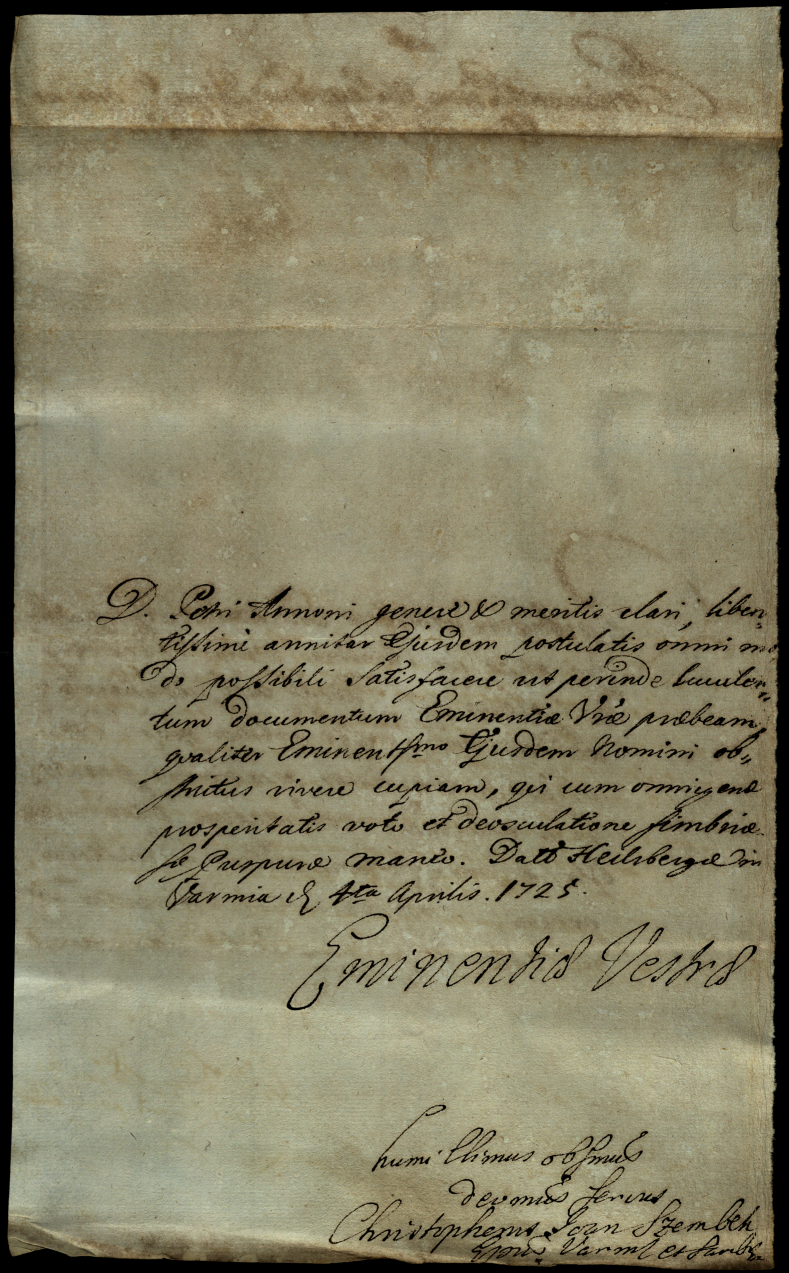 D. Petri Annoni genere & meritis clari, liben=
tissime annitar Ejusdem postulatis omni mo
do possibili satisfacere ut perinde luculen=
tum documentum Eminentiæ Vræ præbeam,
qvaliter Eminentssmo Ejusdem Nomini ob=
strictus vivere cupiam, qui cum omnigenæ
prosperitatis voto et deosculatione fimbriæ
Purpuræ maneo. Datt Heilsbergæ in
Varmia 4ta Aprilis. 1725.
Eminentiæ Vestræ
humillimus obsmus
devmus servus
Christopherus Joan Szembek
Epus Varm et Samb